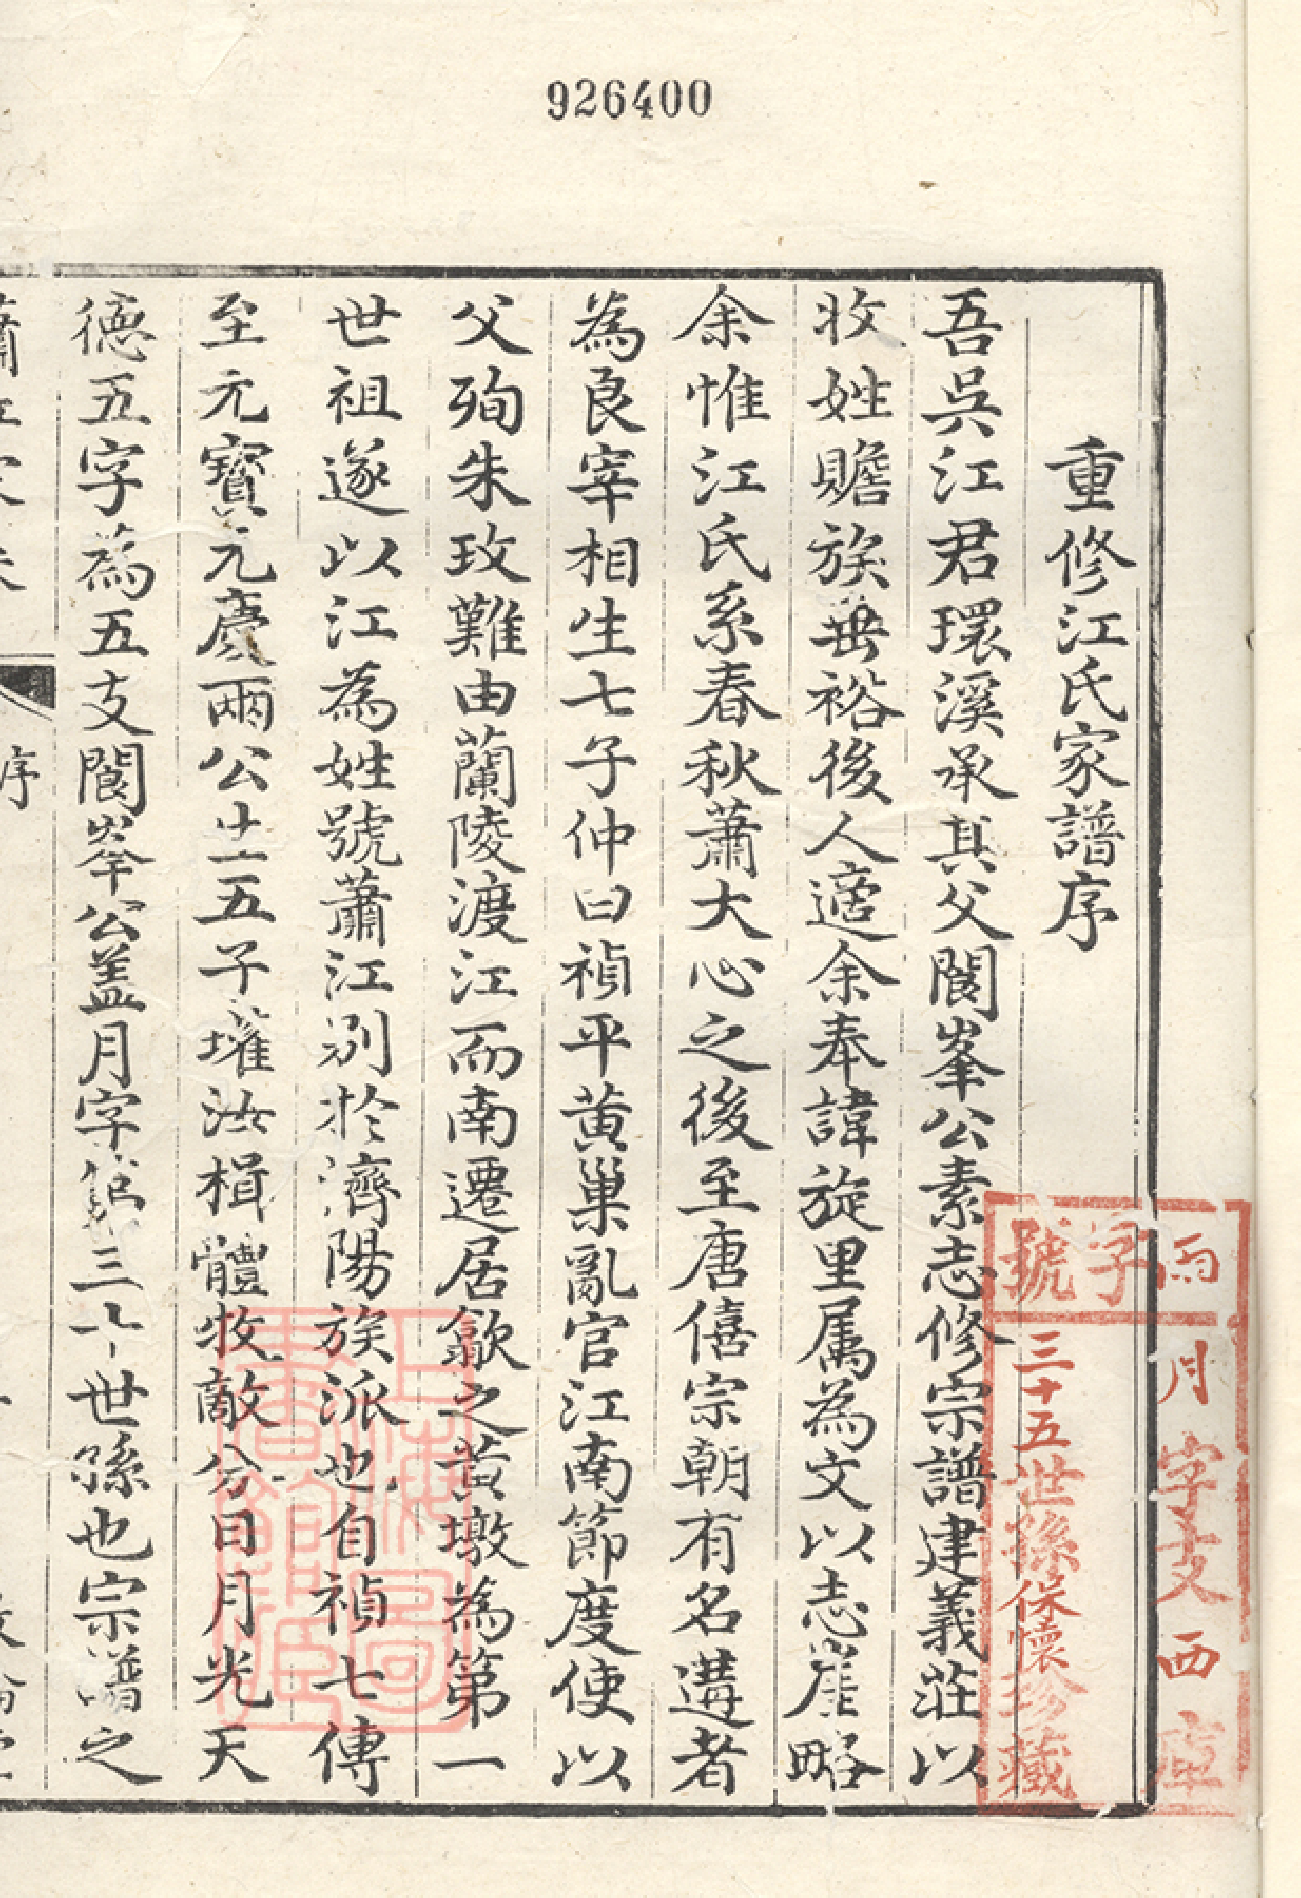 926400
重修江氏家譜序
吾吳江君環溪承其父閬峯公素志修宗譜建義莊以
收姓贍族垂裕後人適余奉諱旋里属為文以志崖略
余惟江氏系春秋蕭大心之後至唐僖宗朝有名遘者
為良宰相生七子仲曰禎平黃巢亂官江南節度使以
父殉朱玫難由蘭陵渡江而南遷居歙之黃墩為第一
世祖遂以江為姓號蕭江別於濟陽族派也自禎七傳
至元寶元慶兩公生五子㩁汝楫體牧敵分日月光天
德五字為五支閬峯公蓋月字第三十世孫也宗譜之
序
雨字號
月字支西庫
三十五世孫保懷珍藏
上海圖書館藏